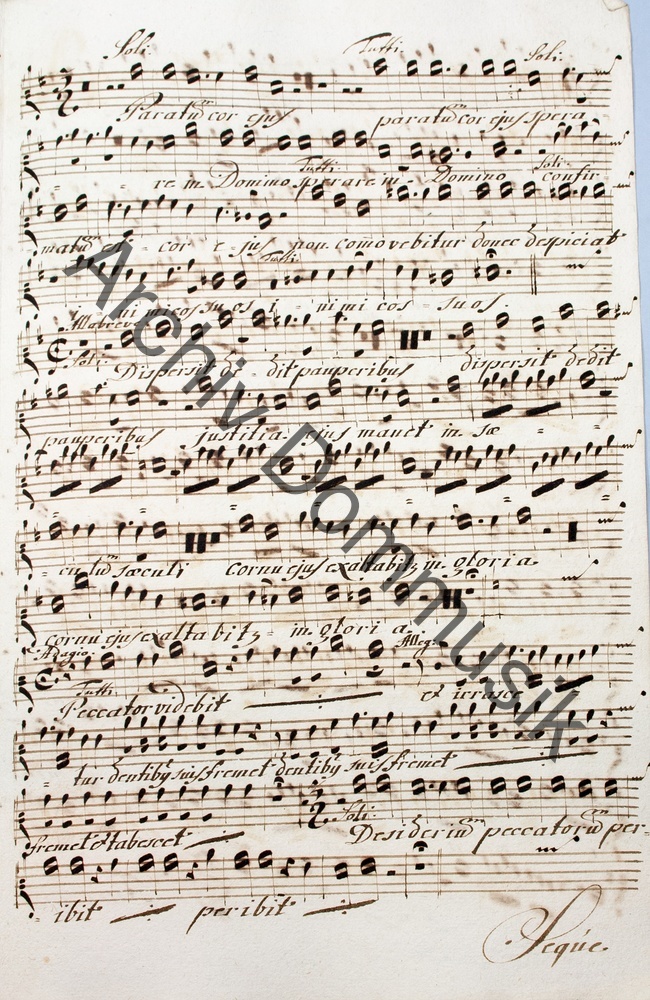 Soli. Tutti. Soli.
Paratũ cor ejus paratũ cor ejus spera
re in Domino sperare in Domino confir
Tutti. Soli.
matũ est cor ejus non com̃ovebitur donec despiciat
Tutti.
inimicos suos inimicos suos.
Allabreve
Soli. Dispersit dedit pauperibus dispersit dedit
pauperibus justitia ejus manet in sæ
culũ sæculi cornu ejus exaltabitz in gloria
cornu ejus exaltabitz in gloria.
Adagio. Allegro
Tutti.
Peccator videbit et irasce
tur dentibq suis fremet dentibq suis fremet
Soli.
fremet et tabescet Desideriũ peccatorũ per-
ibit peribit
Seque.
Archiv Dommusik